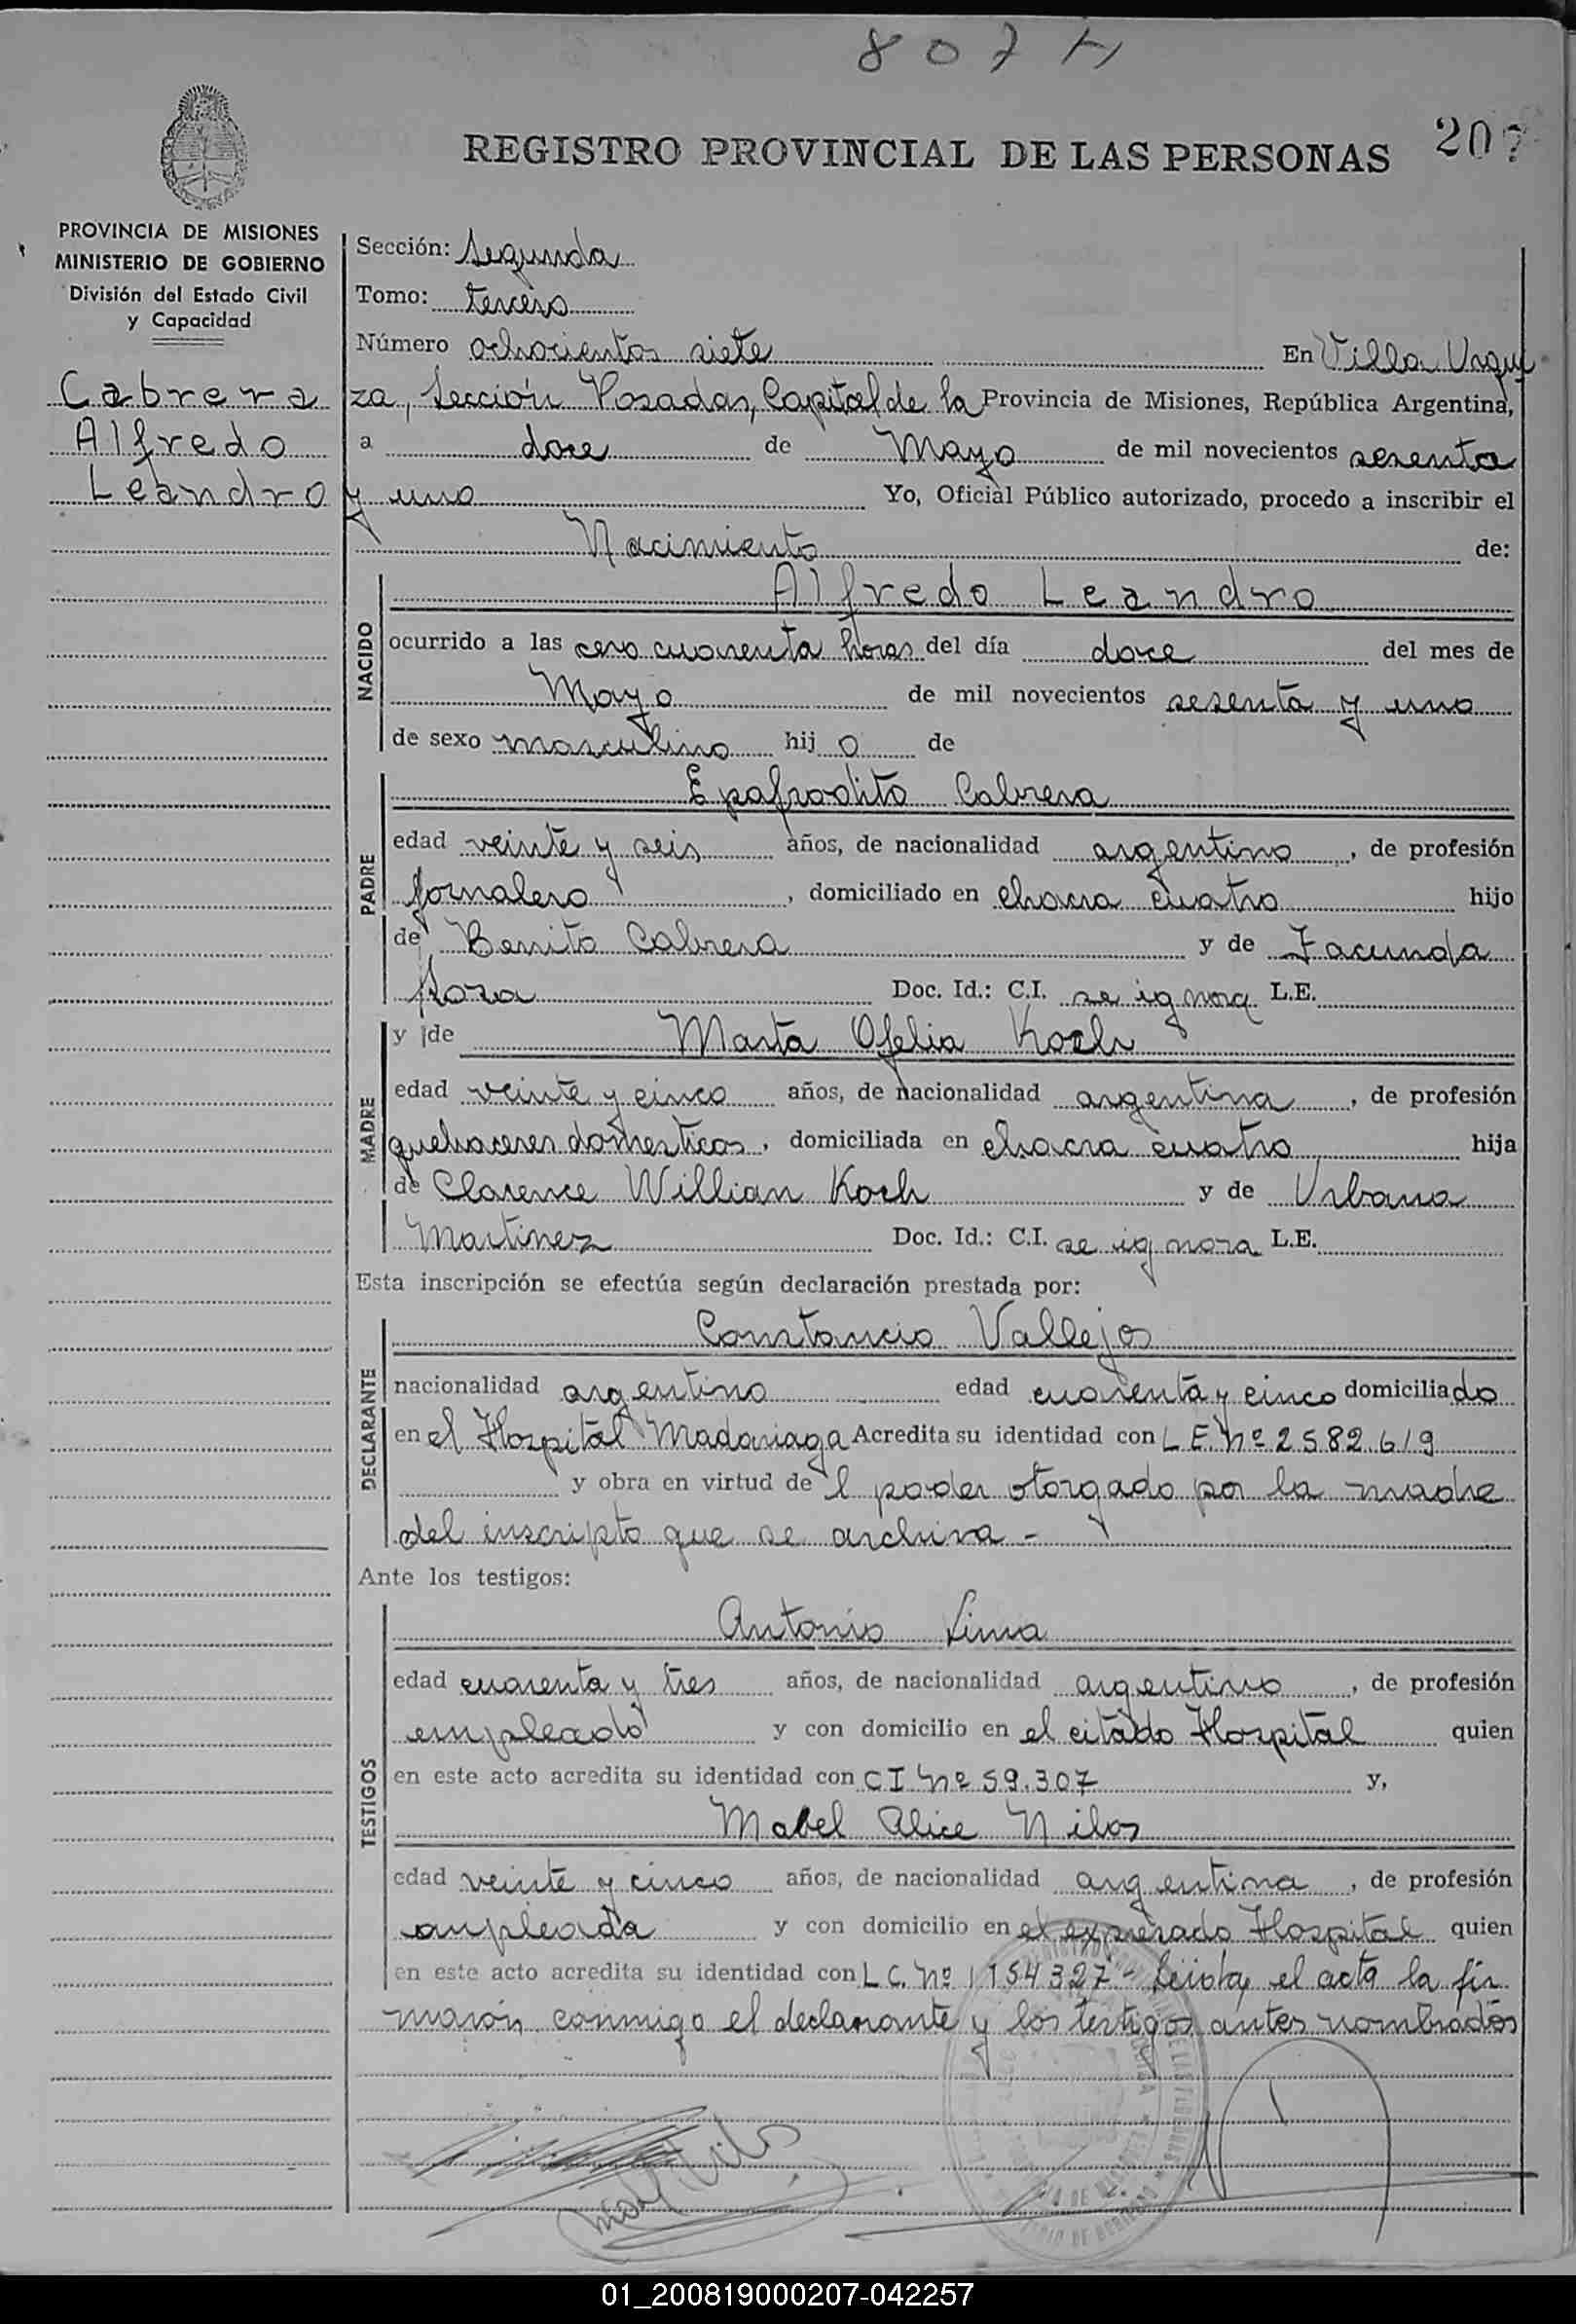 807 H
207
REGISTRO PROVINCIAL DE LAS PERSONAS
PROVINCIA DE MISIONES
MINISTERIO DE GOBIERNO
División del Estado Civil
y Capacidad
Cabrera
Alfredo
Leandro
Sección: Segunda
Tomo: tercero
Número ochocientos siete En Villa Urqui
za, Sección Posadas, Capital de la Provincia de Misiones, República Argentina,
a doce de Mayo de mil novecientos sesenta
y uno Yo, Oficial Público autorizado, procedo a inscribir el
Nacimiento de:
NACIDO
Alfredo Leandro
ocurrido a las cero cuarenta horas del día doce del mes de
Mayo de mil novecientos sesenta y uno
de sexo masculino hij o de
PADRE
Epafrodito Cabrera
edad veinte y seis años, de nacionalidad argentino, de profesión
jornalero, domiciliado en chacra cuatro hijo
de Benito Cabrera y de Facunda
Sosa Doc. Id.: C.I. se ignora L.E.
MADRE
y de Marta Ofelia Koch
edad veinte y cinco años, de nacionalidad argentina, de profesión
quehaceres domesticos, domiciliada en chacra cuatro hija
de Clarence Willian Koch y de Urbana
Martinez Doc. Id.: C.I. se ignora L.E.
Esta inscripción se efectúa según declaración prestada por:
DECLARANTE
Constancio Vallejos
nacionalidad argentino edad cuarenta y cinco domiciliado
en el Hospital Madariaga Acredita su identidad con L E. Nº 2582619
y obra en virtud de l poder otorgado por la madre
del inscripto que se archiva -
Ante los testigos:
TESTIGOS
Antonio Lima
edad cuarenta y tres años, de nacionalidad argentino, de profesión
empleado y con domicilio en el citado Hospital quien
en este acto acredita su identidad con C I Nº 59.307 y,
Mabel Alice Nilos
edad veinte y cinco años, de nacionalidad argentina, de profesión
empleada y con domicilio en el expresado Hospital quien
en este acto acredita su identidad con L C. Nº 1154327 - Leida el acta la fir
maron conmigo el declarante y los testigos antes nombrados
01_200819000207-042257